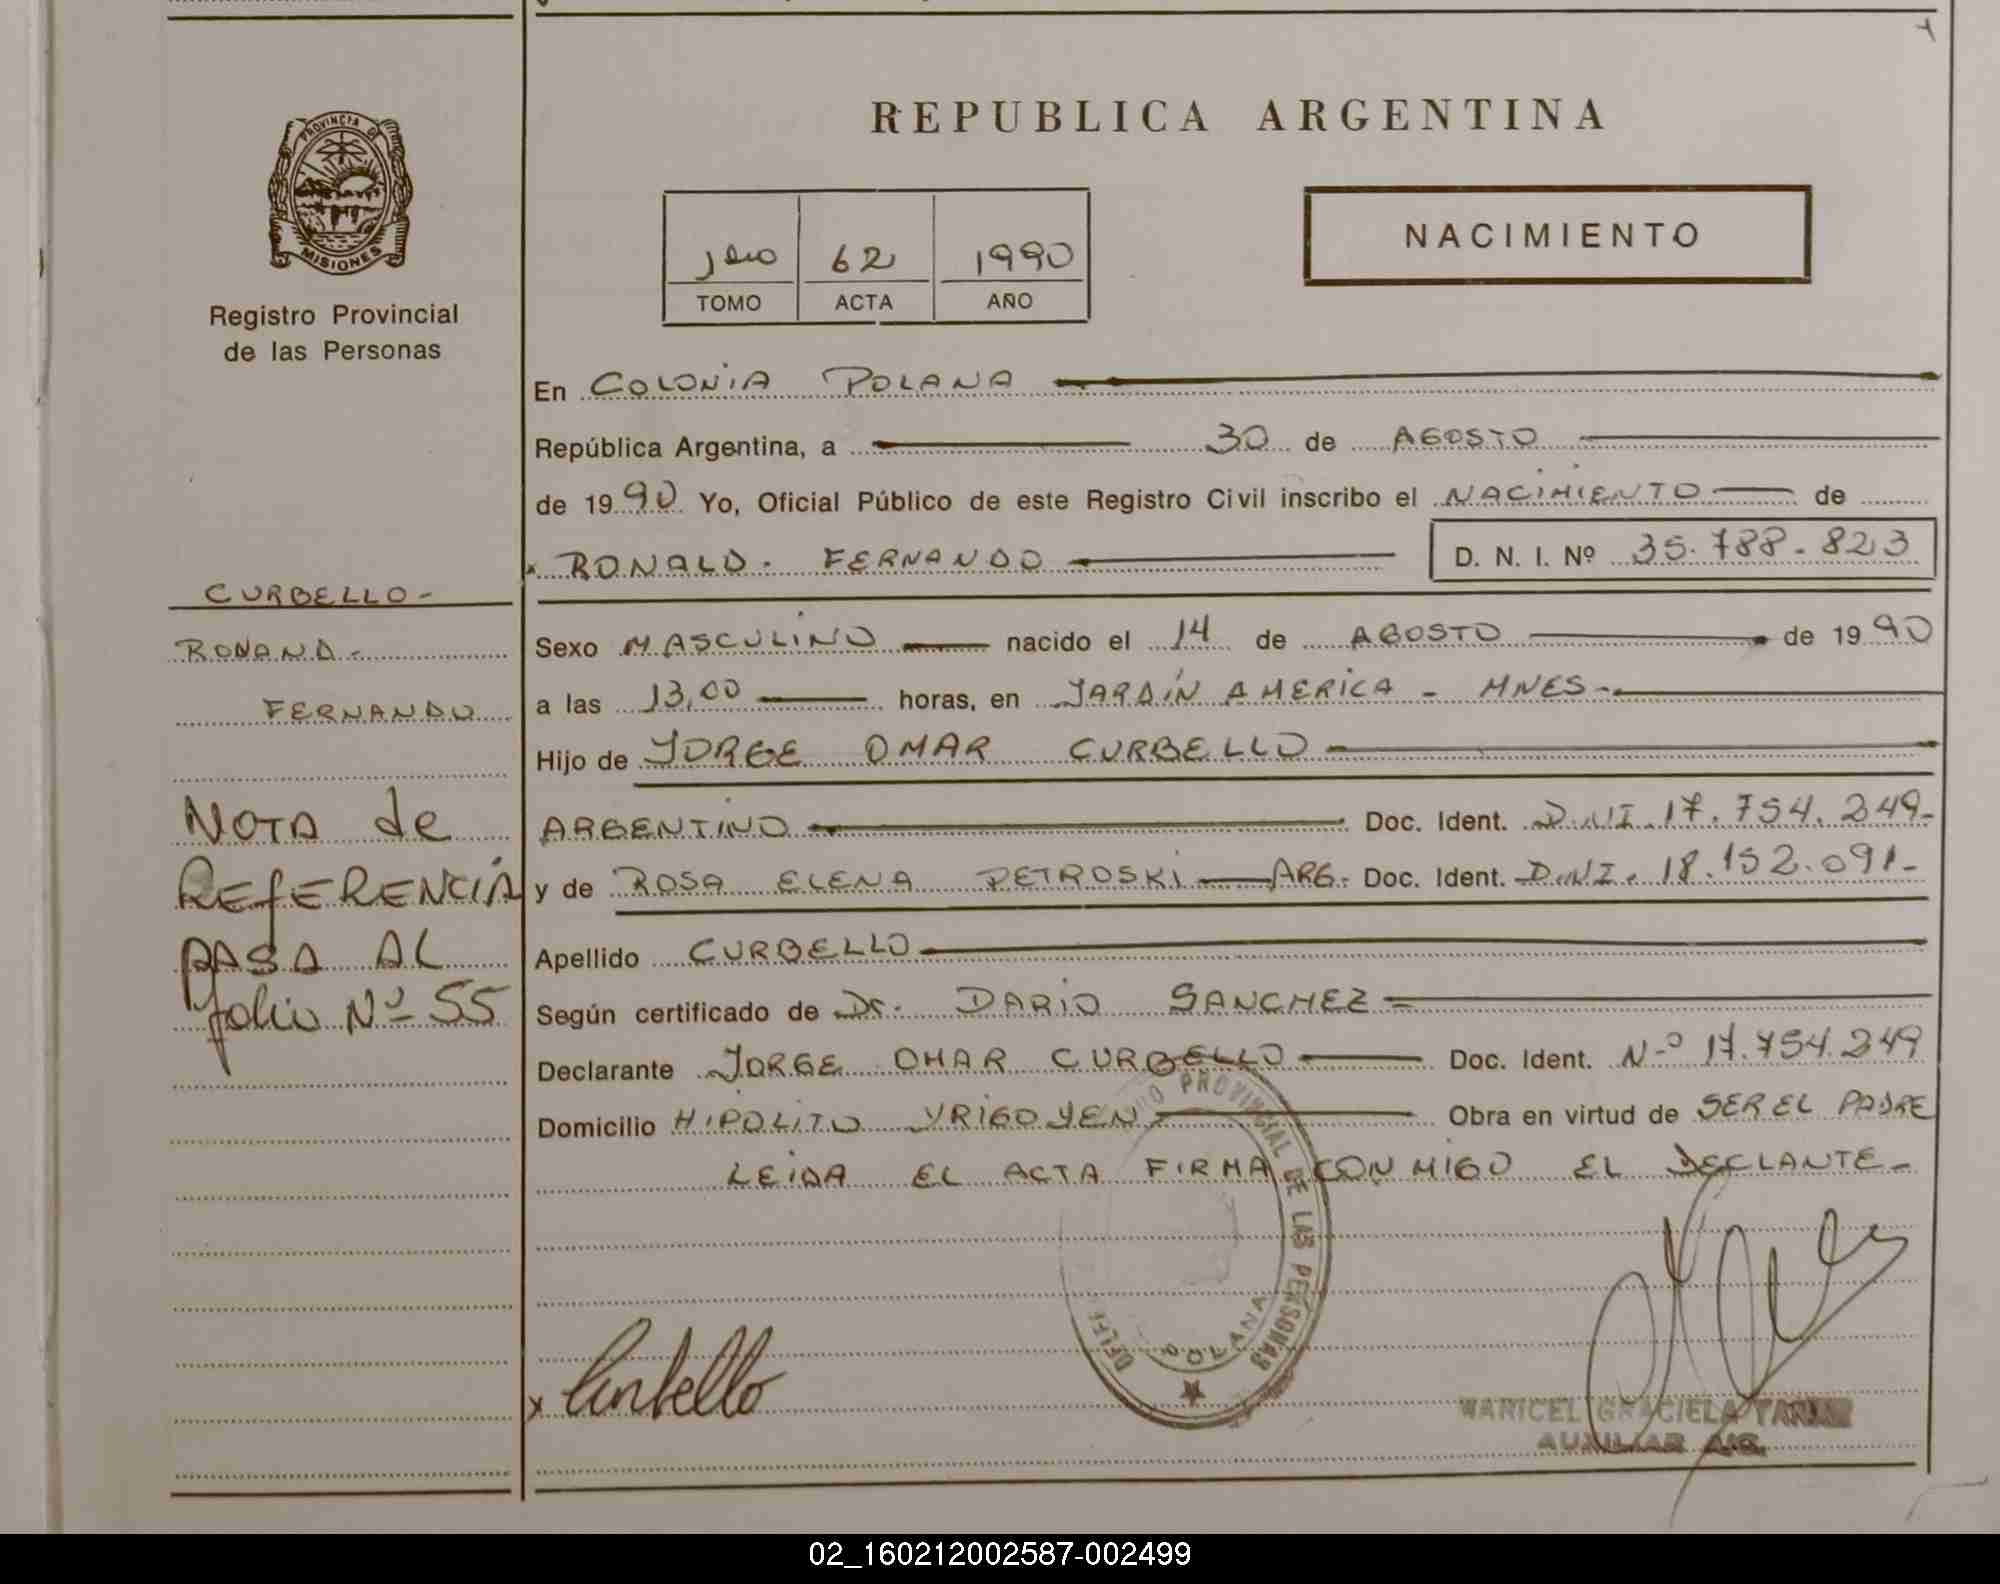 REPUBLICA ARGENTINA
PROVINCIA D
MISIONES
Registro Provincial
de las Personas
62 1990
TOMO ACTA AÑO
NACIMIENTO
En COLONIA POLANA
República Argentina, a 30 de AGOSTO
de 1990 Yo, Oficial Público de este Registro Civil inscribo el NACIMIENTO de
RONALD. FERNANDO D. N. I. Nº 35.788.823
CURBELLO-
RONAND-
FERNANDO
NOTA de
REFERENCIA
PASA AL
folio Nº 55
Sexo MASCULINO nacido el 14 de AGOSTO de 1990
a las 13,00 horas, en JARDIN AMERICA - MNES-
Hijo de JORGE OMAR CURBELLO
ARGENTINO Doc. Ident. D.NI.17.754.249-
y de ROSA ELENA PETROSKI ARG. Doc. Ident. D.NI. 18.152.091-
Apellido CURBELLO
Según certificado de Dr. DARIO SANCHEZ
Declarante JORGE OMAR CURBELLO Doc. Ident. N-º 17.754.249
Domicilio HIPOLITO YRIGOYEN Obra en virtud de SER EL PADRE
LEIDA EL ACTA FIRMA CONMIGO EL DECLANTE-
PROVINCIAL DE LAS PERSONAS
POLANA
x Curbello
MARICEL GRACIELA
AUXILIAR
02_160212002587-002499